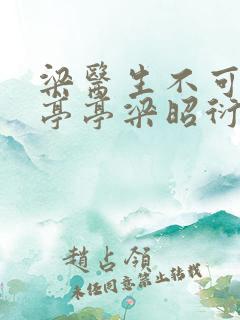 梁醫生不可
亭亭梁昭衍
趙占領
未经同意禁止转载